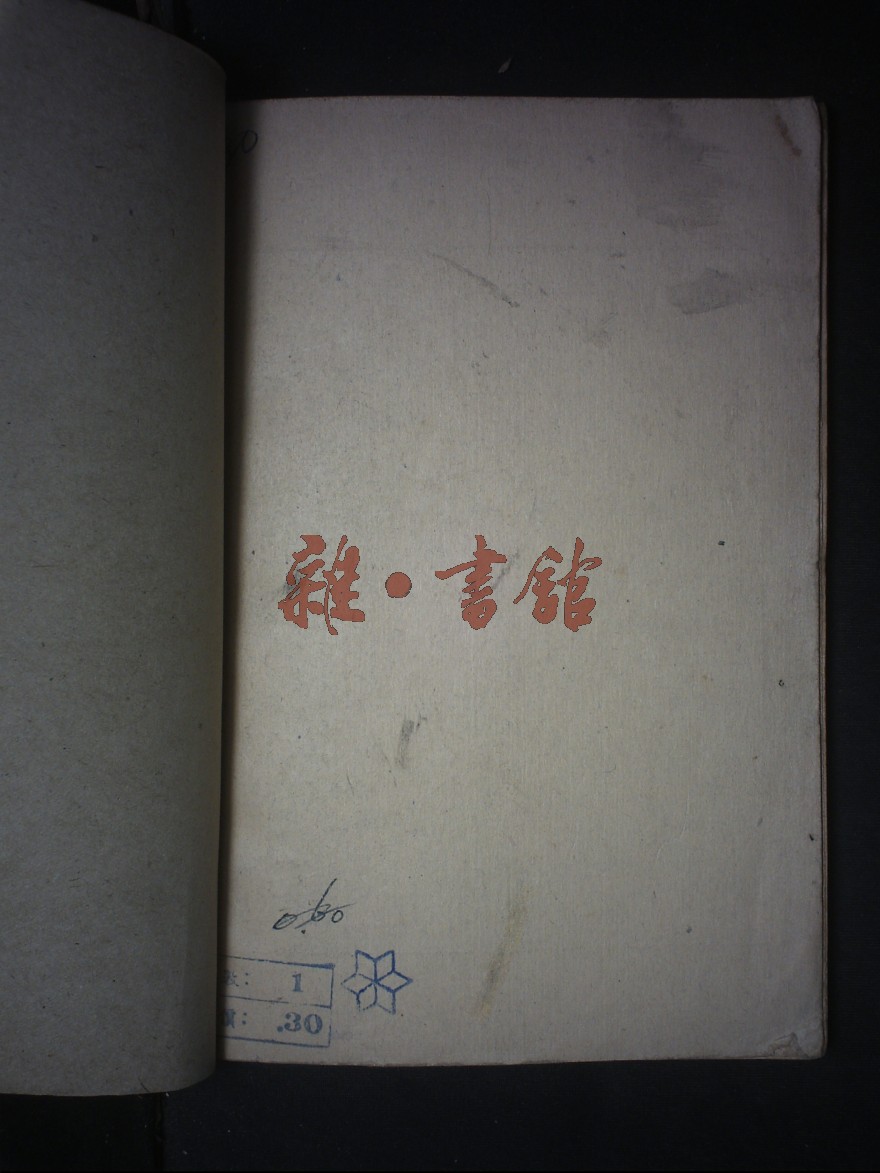 雜・書館
0.60
1
.30